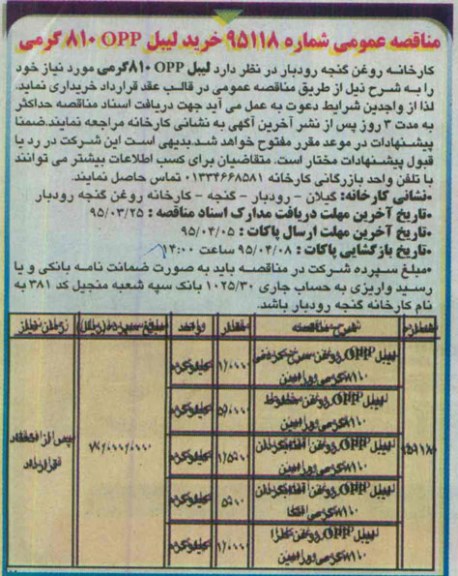 مناقصه عمومی شماره ۹۵۱۱۸ خرید لیبل OPP ۸۱۰ گرمی
کارخانه روغن گنجه رودبار در نظر دارد لیبل OPP ۸۱۰گرمی مورد نیاز خود
را به شرح ذیل از طریق مناقصه عمومی در قالب عقد قرارداد خریداری نماید.
لذا از واجدین شرایط دعوت به عمل می آید جهت دریافت اسناد مناقصه حداکثر
به مدت ۳ روز پس از نشر آخرین آگهی به نشانی کارخانه مراجعه نمایند.ضمنا
پیشنهادات در موعد مقرر مفتوح خواهد شد.بدیهی است این شرکت در رد یا
قبول پیشنهادات مختار است. متقاضیان برای کسب اطلاعات بیشتر می توانند
با تلفن واحد بازرگانی کارخانه ۰۱۳۳۴۶۶۸۵۸۱ تماس حاصل نمایند.
•نشانی کارخانه: گیلان - رودبار - گنجه - کارخانه روغن گنجه رودبار
•تاریخ آخرین مهلت دریافت مدارک اسناد مناقصه : ۹۵/۰۳/۲۵
•تاریخ آخرین مهلت ارسال پاکات : ۹۵/۰۴/۰۵
•تاریخ بازگشایی پاکات : ۹۵/۰۴/۰۸ ساعت ۱۴:۰۰
•مبلغ سپرده شرکت در مناقصه باید به صورت ضمانت نامه بانکی و یا
رسید واریزی به حساب جاری ۱۰۲۵/۳۰ بانک سپه شعبه منجیل کد ۳۸۱ به
نام کارخانه گنجه رودبار باشد.
شرح مناقصه مقدار واحد زمان نیاز
لیبل OPP روغن سرخ کردنی ۱/۰۰۰ کیلوگرم
لیبل OPP روغن مخلوط کیلوگرم
۹۵۱۱۸ لیبل OPP روغن آفتابگردان کیلوگرم پس از انعقاد
قرارداد
لیبل OPP روغن آفتابگردان ۵۰۰ کیلوگرم
لیبل OPP روغن ۱/۰۰۰ کیلوگرم